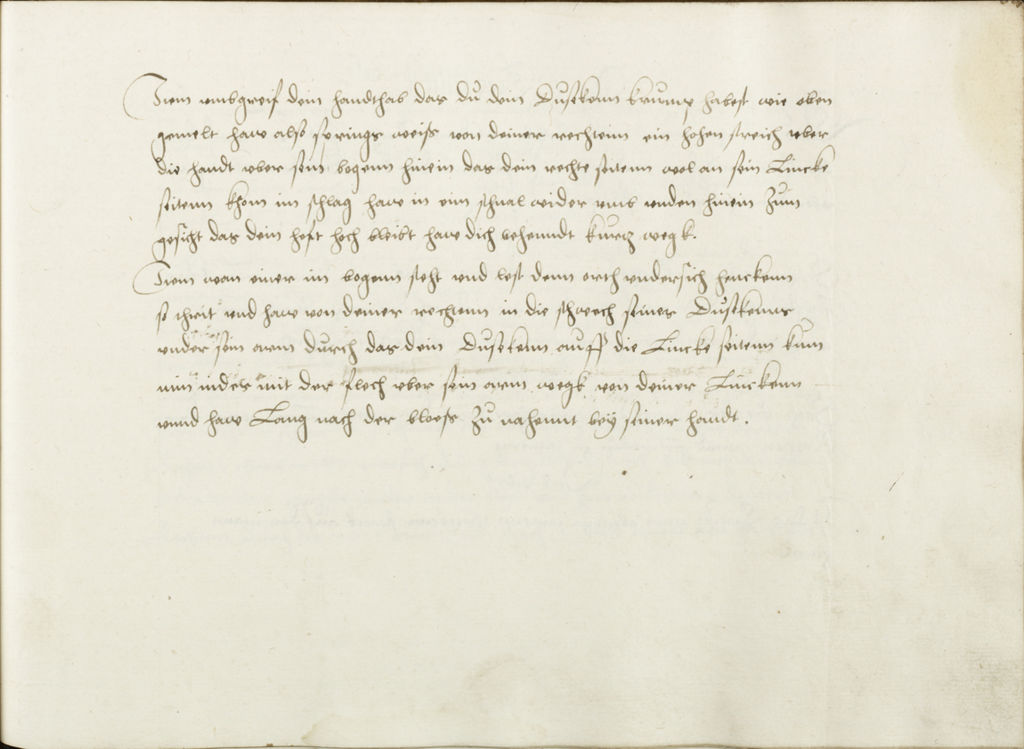 Item umbgreif dein handthab das du dein Dusekenn krump habest wie oben
gemelt haw also springs weiss von deiner rechtenn ein hohen streich uber
die handt uber sein bogenn hinein das dein rechte seitenn wol an sein Lincke
seitenn khom im schlag haw in ein schnal wider umb unden hinein Zum
gesicht das dein heft hoch bleibt haw dich behenndt kurtz wegk.
Item wan einer im bogenn steht und lest denn orth undersich henckenn
so schrit und haw von deiner rechtenn in die schwech seines Dusekenns
under sein arm durch das dein Dusekenn auff die Lincke seitenn kum
nim inder mit der flech uber sein arm wegk von deiner Linckenn
unnd haw Lang nach der bloess Zu nahennt bey seiner handt.